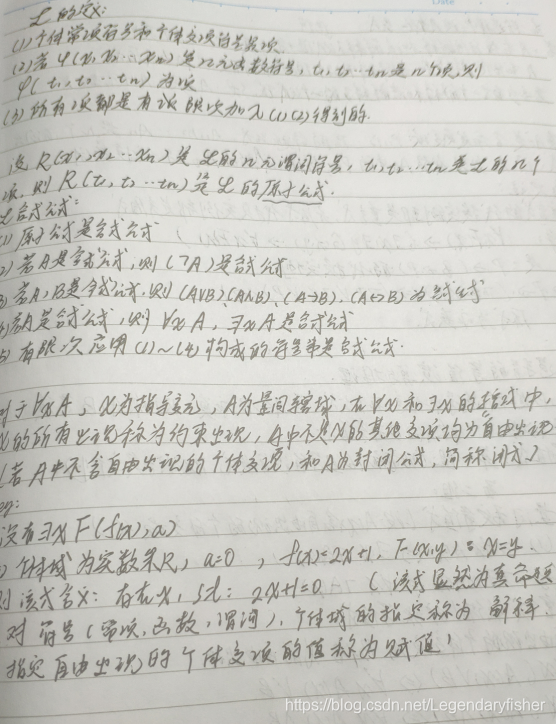 Date
ℒ的定义:
(1)个体常项符号和个体变项符号是项
(2)若φ(x₁,x₂…xₙ)是n元函数符号, t₁,t₂…tₙ是n个项,则
φ(t₁,t₂…tₙ)为项
(3)所有项都是有限次加入(1)(2)得到的.
设R(x₁,x₂…xₙ)是ℒ的n元谓词符号, t₁,t₂…tₙ是ℒ的n个
项,则R(t₁,t₂…tₙ)是ℒ的原子公式.
ℒ合式公式:
(1)原子公式是合式公式
2)若A是合式公式,则(¬A)是合式公式
3)若A,B是合式公式,则(A∨B)(A∧B),(A→B),(A↔B)为合式公式
4)若A是合式公式,则∀xA,∃xA是合式公式
5)有限次应用(1)~(4)构成的符号串是合式公式.
对于∀xA, x为指导变元, A为量词辖域,在∀x和∃x的辖域中,
x的所有出现称为约束出现, A中不是x的其他变项均为自由出现
(若A中不含自由出现的个体变项,称A为封闭公式,简称闭式.)
eg:
设有∃xF(f(x),a)
个体域为实数集R, a=0, f(x)=2x+1, F(x,y): x=y.
则该式含义: 存在x, st: 2x+1=0 (该式显然为真命题
对符号(常项,函数,谓词),个体域的指定称为解释.
指定自由出现的个体变项的值称为赋值!
https://blog.csdn.net/Legendaryfisher